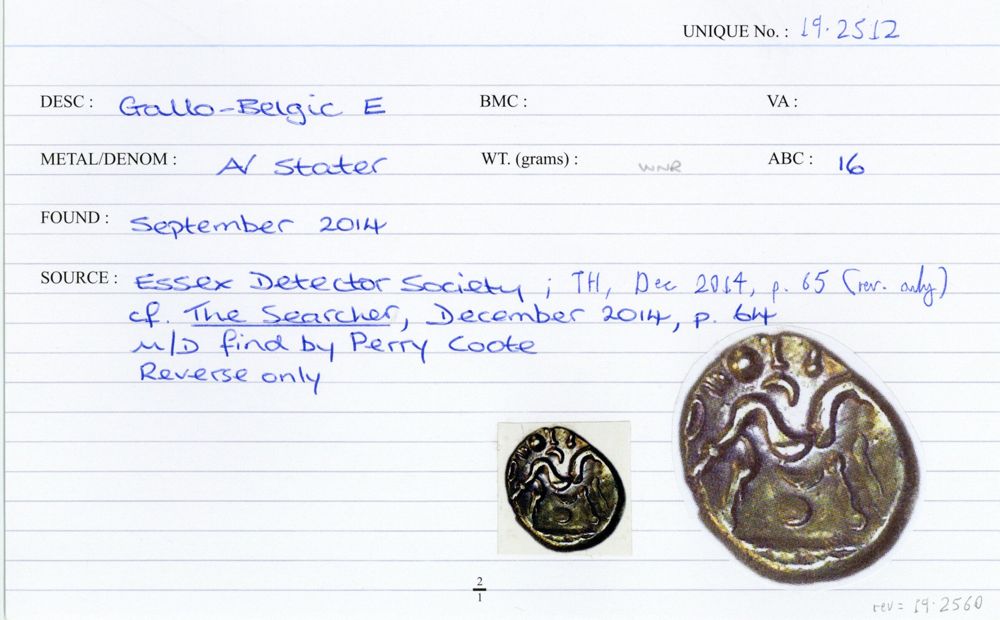 UNIQUE No. : 19.2512
DESC : Gallo-Belgic E BMC : VA :
METAL/DENOM : A/ Stater WT. (grams) : WNR ABC : 16
FOUND : September 2014
SOURCE : Essex Detector Society ; TH, Dec 2014, p. 65 (rev. only)
cf. The Searcher, December 2014, p. 64
M/D find by Perry Coote
Reverse only
2
1
rev = 19.2560